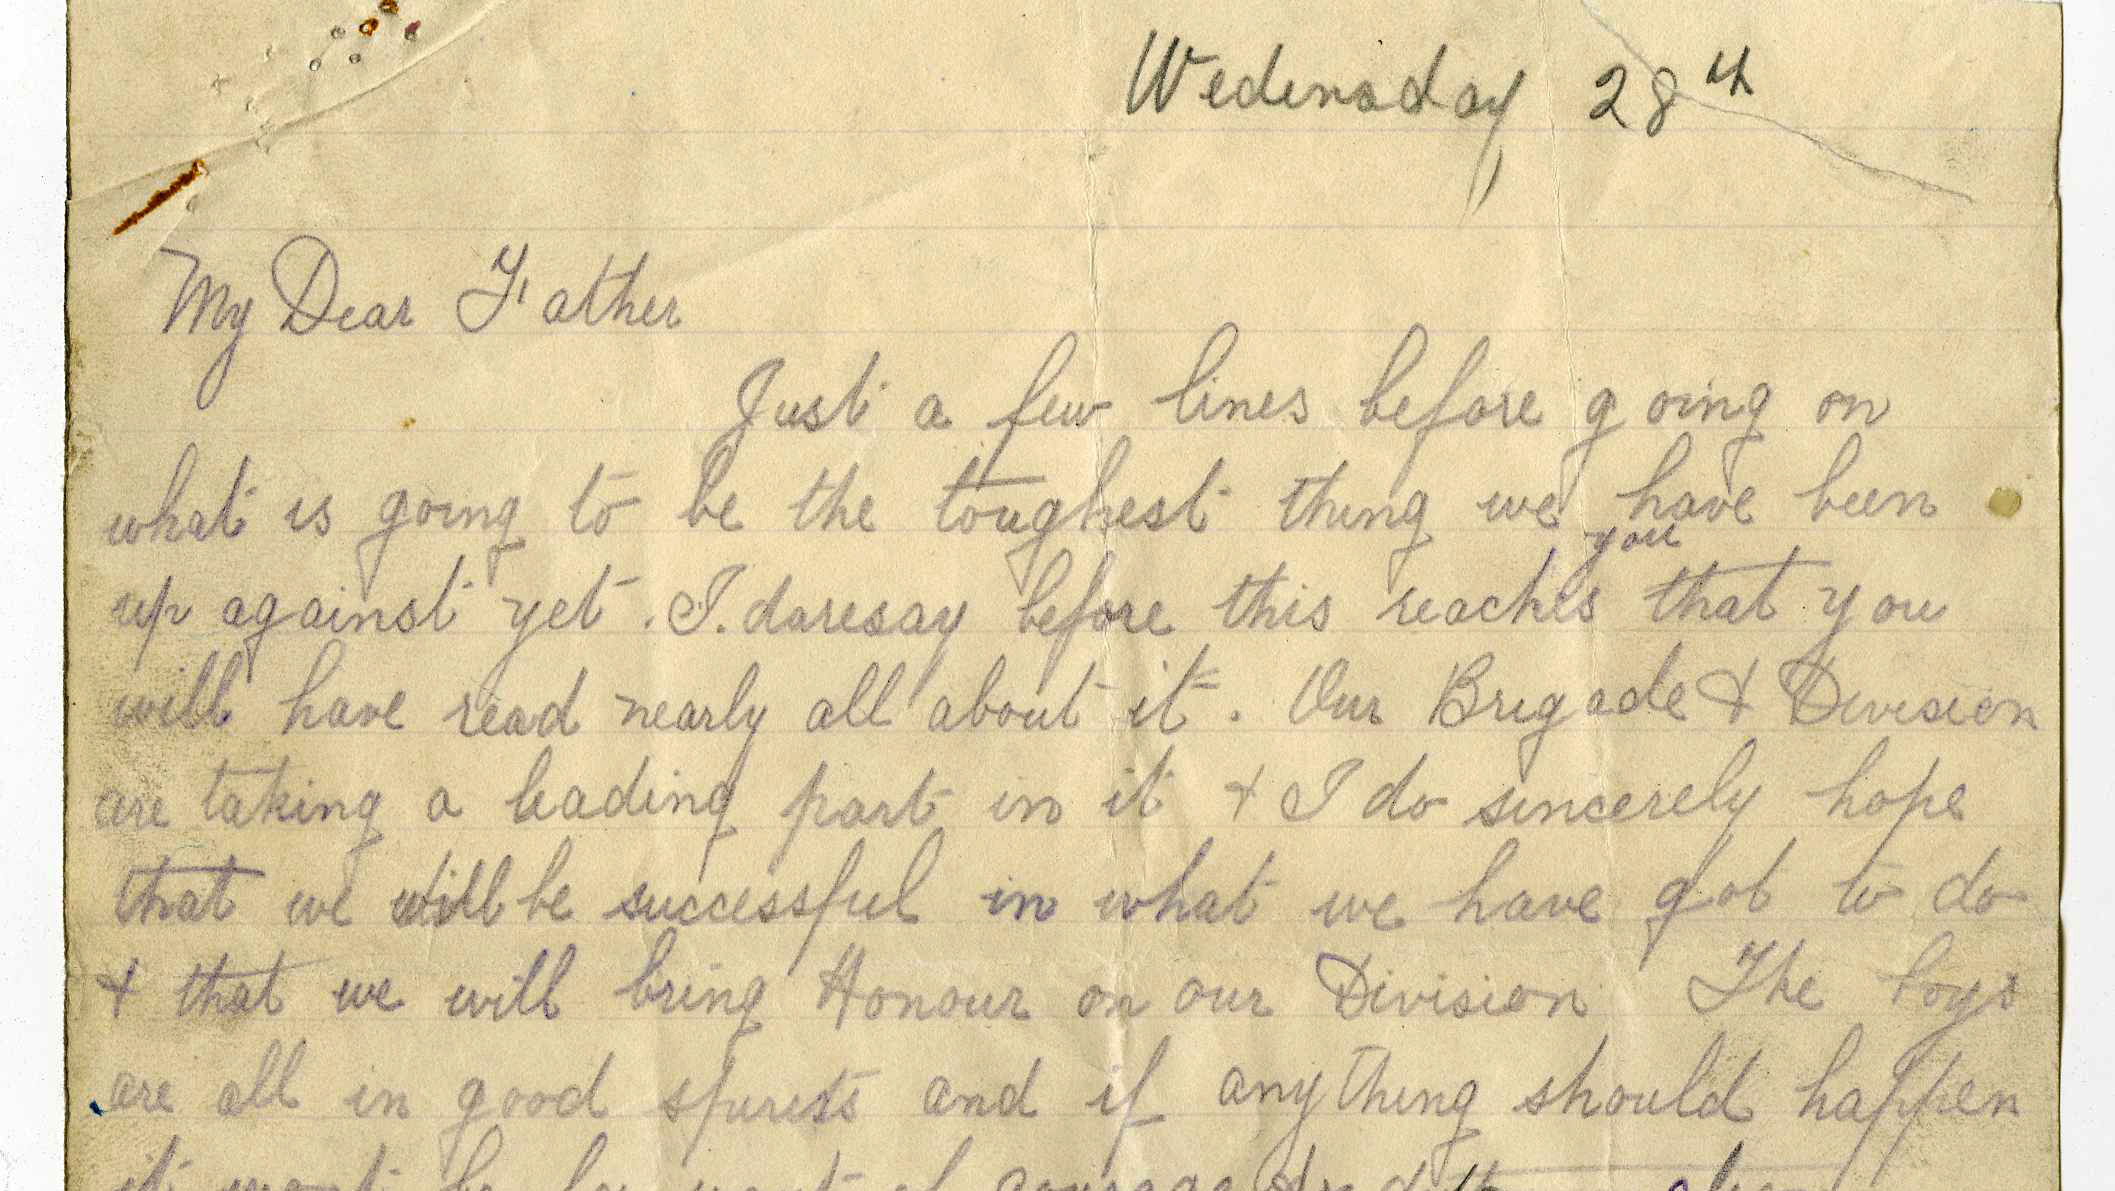 Wedensday 28th
My Dear Father
Just a few lines before going on
what is going to be the toughest thing we have been
up against yet. I. daresay before this reaches you that you
will have read nearly all about it. Our Brigade & Division
are taking a leading part in it & I do sincerely hope
that we will be successful in what we have got to do
& that we will bring Honour on our Division The boys
are all in good spirits and if anything should happen
it wont be for want of courage